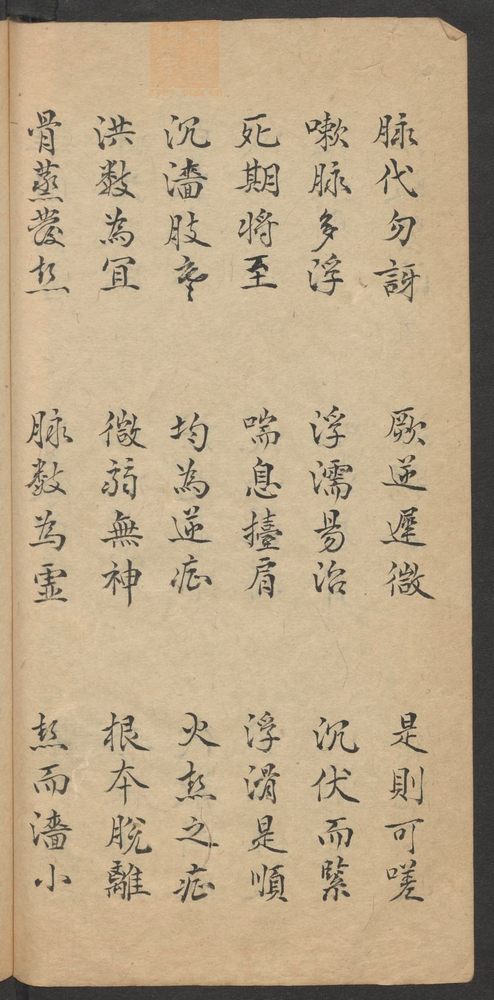 脉代勿訝 厥逆遲微 是則可嗟
嗽脉多浮 浮濡易治 沉伏而緊
死期將至 喘息擡肩 浮滑是順
沉濇肢寒 均為逆症 火𤍠之症
洪数為冝 微弱無神 根本脱離
骨蒸發𤍠 脉數為虛 𤍠而濇小